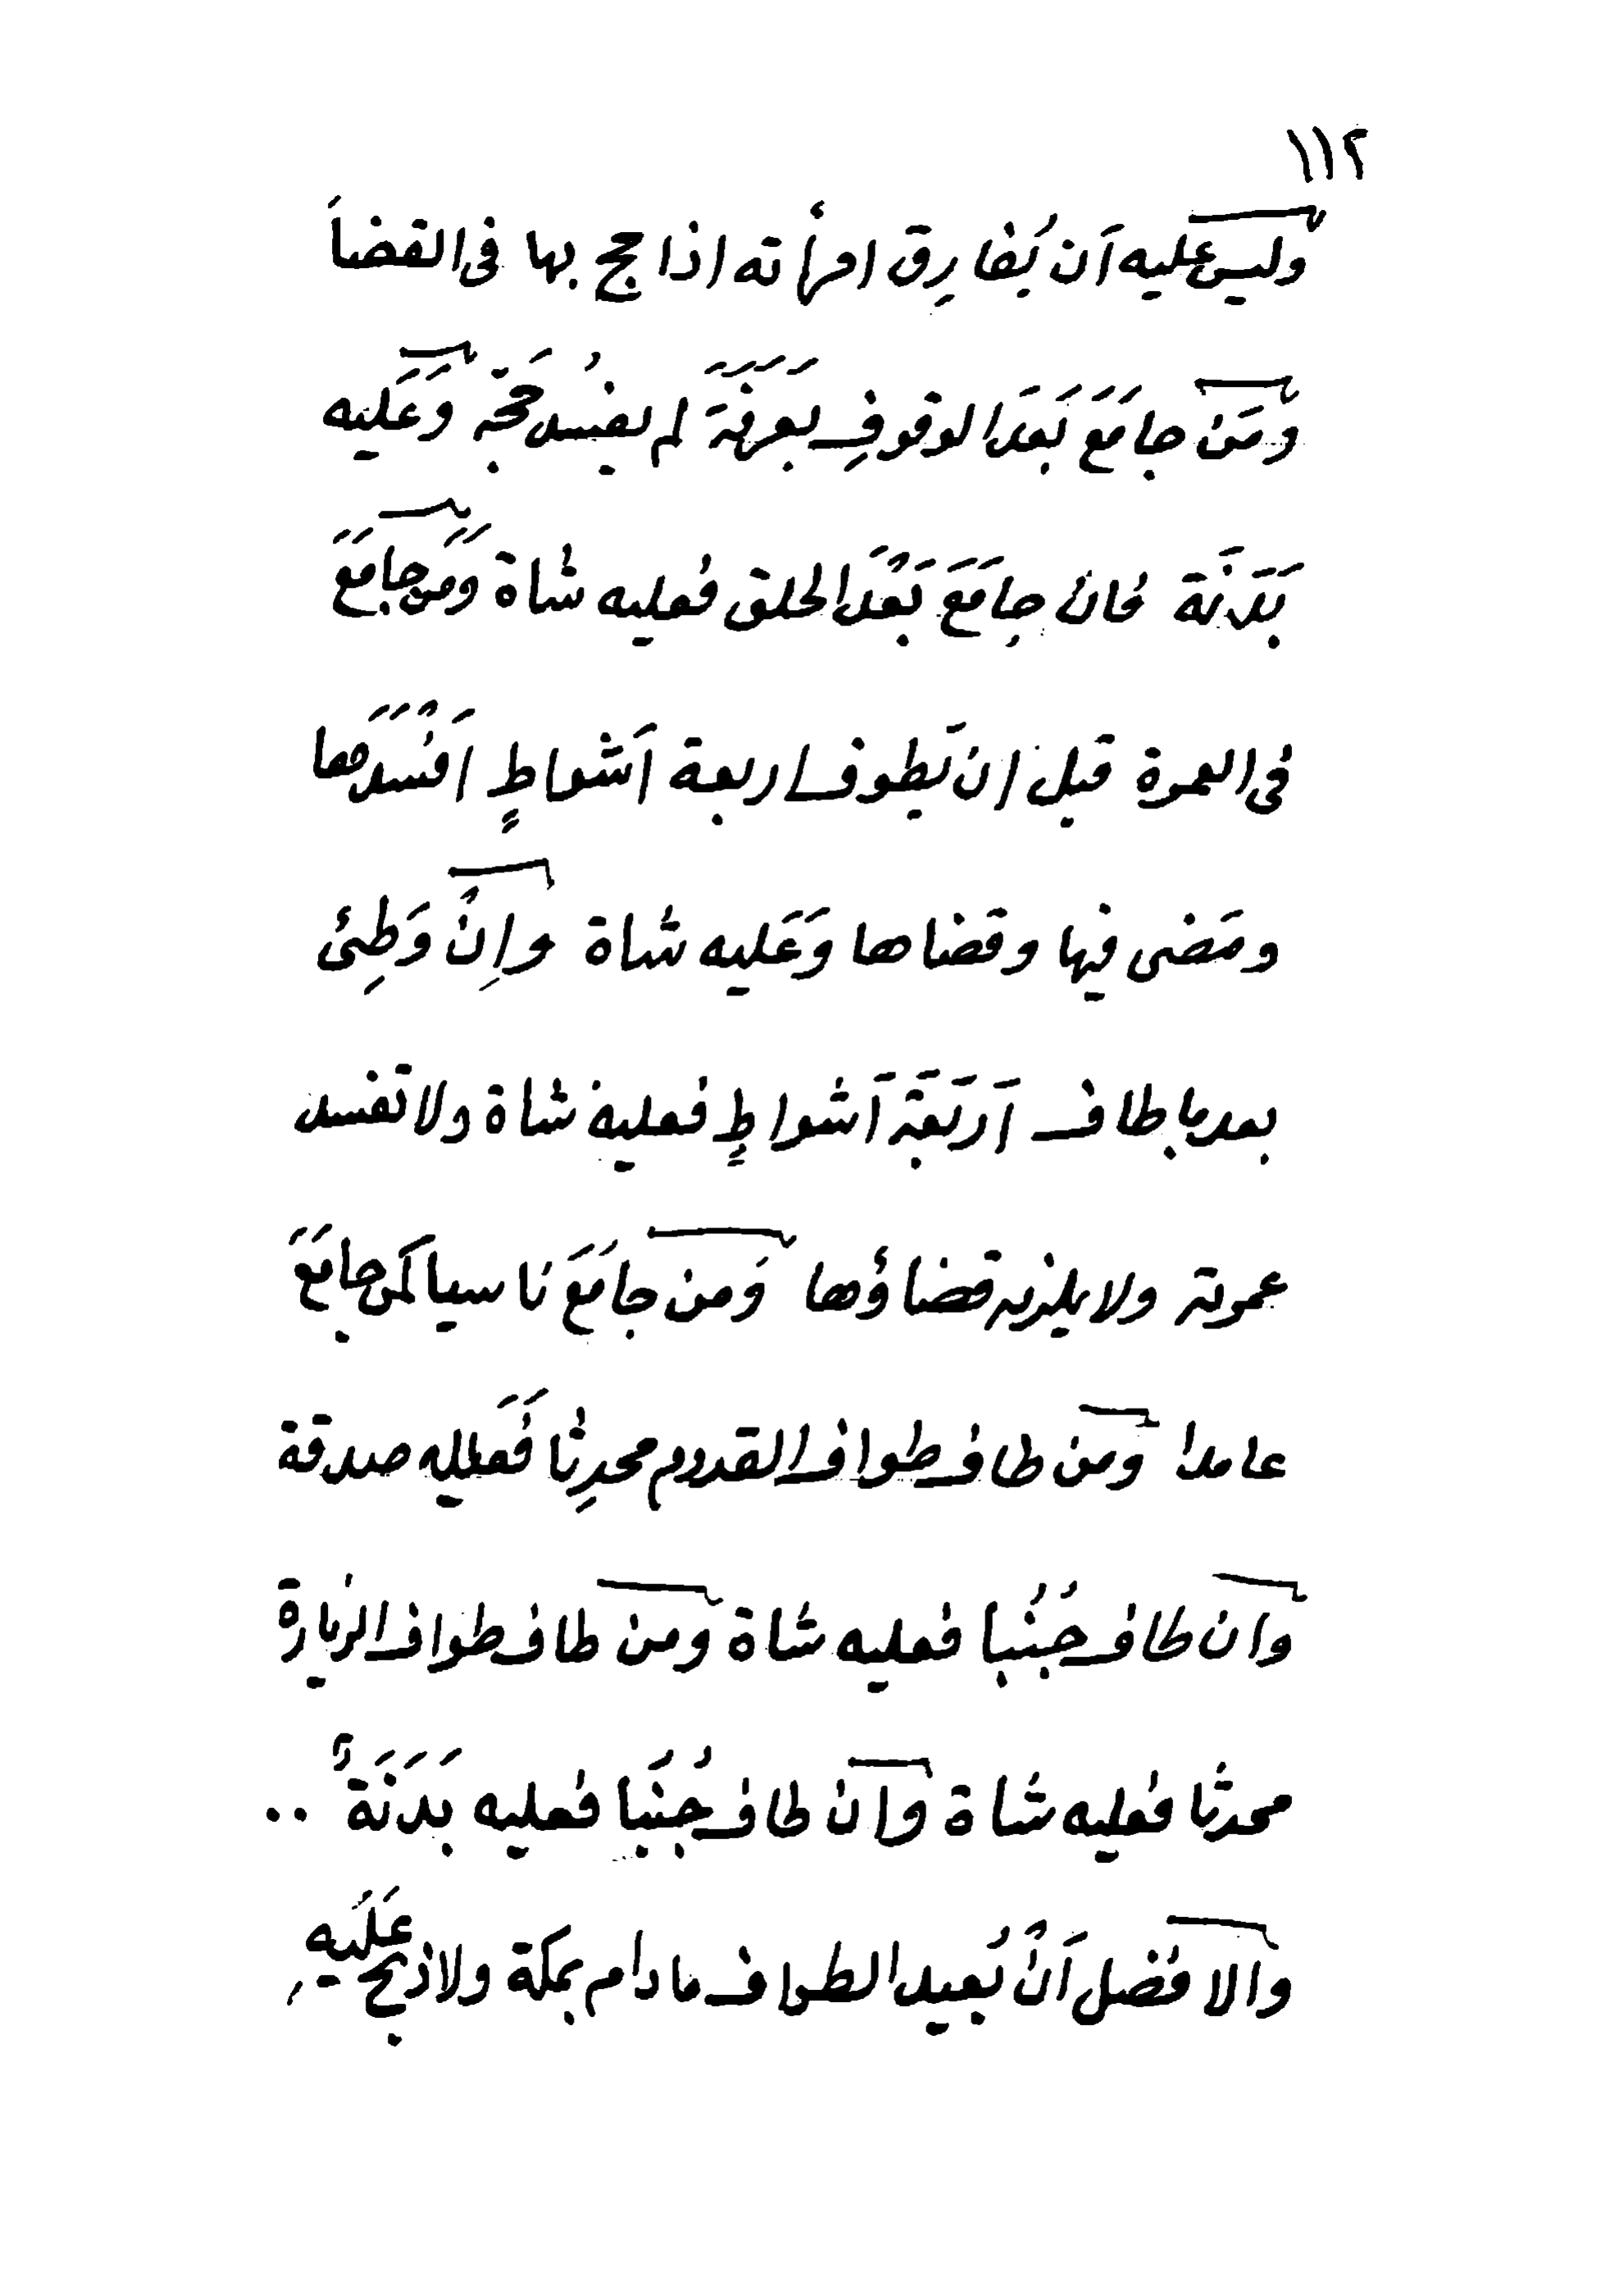 ١١٢
وليس عليه اَن يُفارِق امرأته اذا حج بها فى القضاَ
وَمَن جامَعَ بَعدَ الوقوفِ بَعَرَفَةَ لم يفسُد حَجّه وَعَليه
بَدَنَة فان جامَعَ بَعْدَ الحلق فعليه شاة وَمَن جامَعَ
فى العمرة قبل ان يَطوف اربعة اَشواطٍ اَفْسَدَها
ومَضى فيها وقضاها وَعَليه شاة واِنْ وَطِئ
بعد ما طاف اَربَعَة اَشواطٍ فعليه شاة ولا تفسد
عمرته ولا يلزمه قضاؤها وَمن جامَعَ ناسيا كمن جامَعَ
عامدا ومن طاف طواف القدوم محدِثا فَعليه صدقة
وان طاف جُنُبا فعليه شاة ومن طاف طواف الزيارة
محدثا فعليه شاة وان طاف جُنَبا فعليه بَدَنَةٌ ..
والافضل اَنْ يُعيد الطواف ما دام بمكة ولا ذبح عَلَيهِ